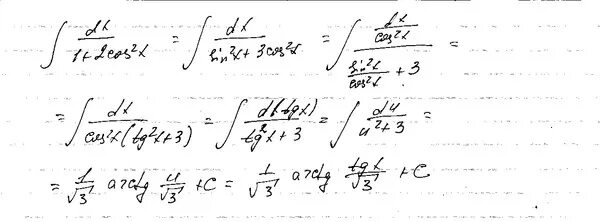 ∫ dx/(1+2cos²x) = ∫ dx/(sin²x+3cos²x) = ∫ (dx/cos²x)/(sin²x/cos²x + 3) =
= ∫ dx/(cos²x(tg²x+3)) = ∫ d(tgx)/(tg²x+3) = ∫ du/(u²+3) =
= 1/√3 arctg u/√3 + C = 1/√3 arctg tgx/√3 + C